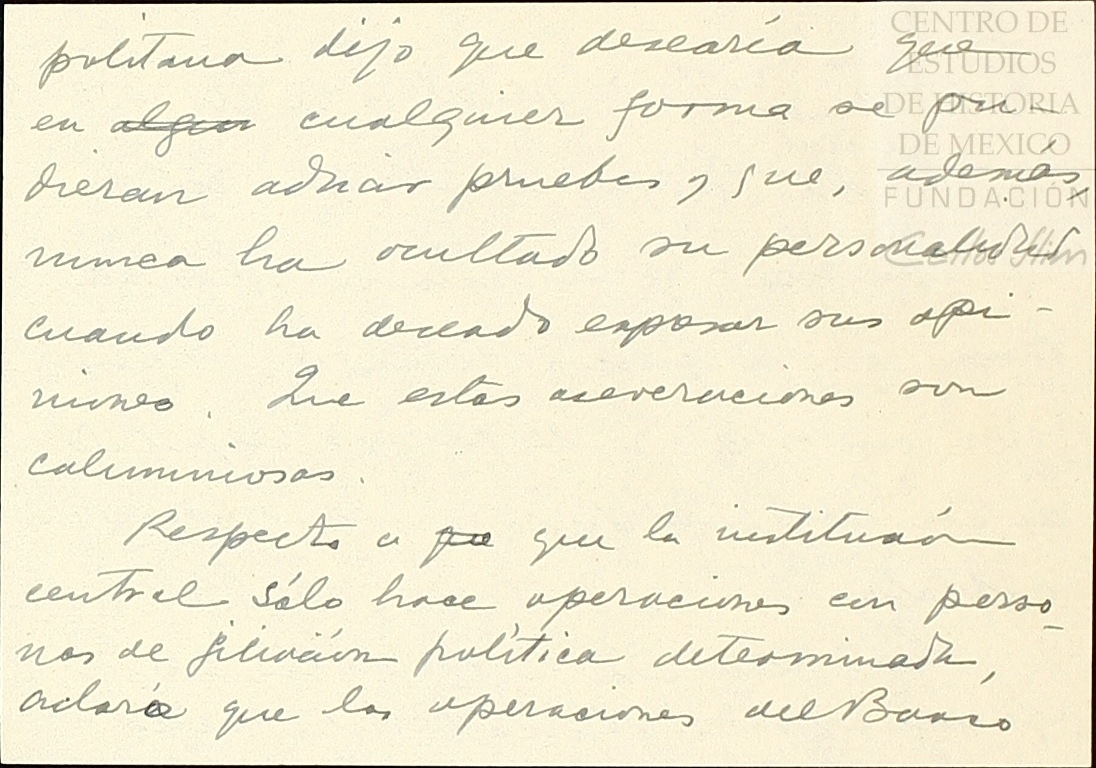 CENTRO DE
ESTUDIOS
DE HISTORIA
DE MEXICO
FUNDACIÓN
Carlos Slim
politana dijo que desearía que
en algun cualquier forma se pu-
dieran aducir pruebas y que, además,
nunca ha ocultado su personalidad
cuando ha deseado exponer sus opi-
niones. Que estas aseveraciones son
calumniosas.
Respecto a que que la institución
central sólo hace operaciones con perso-
nas de filiación política determinada,
aclaró que las operaciones del Banco